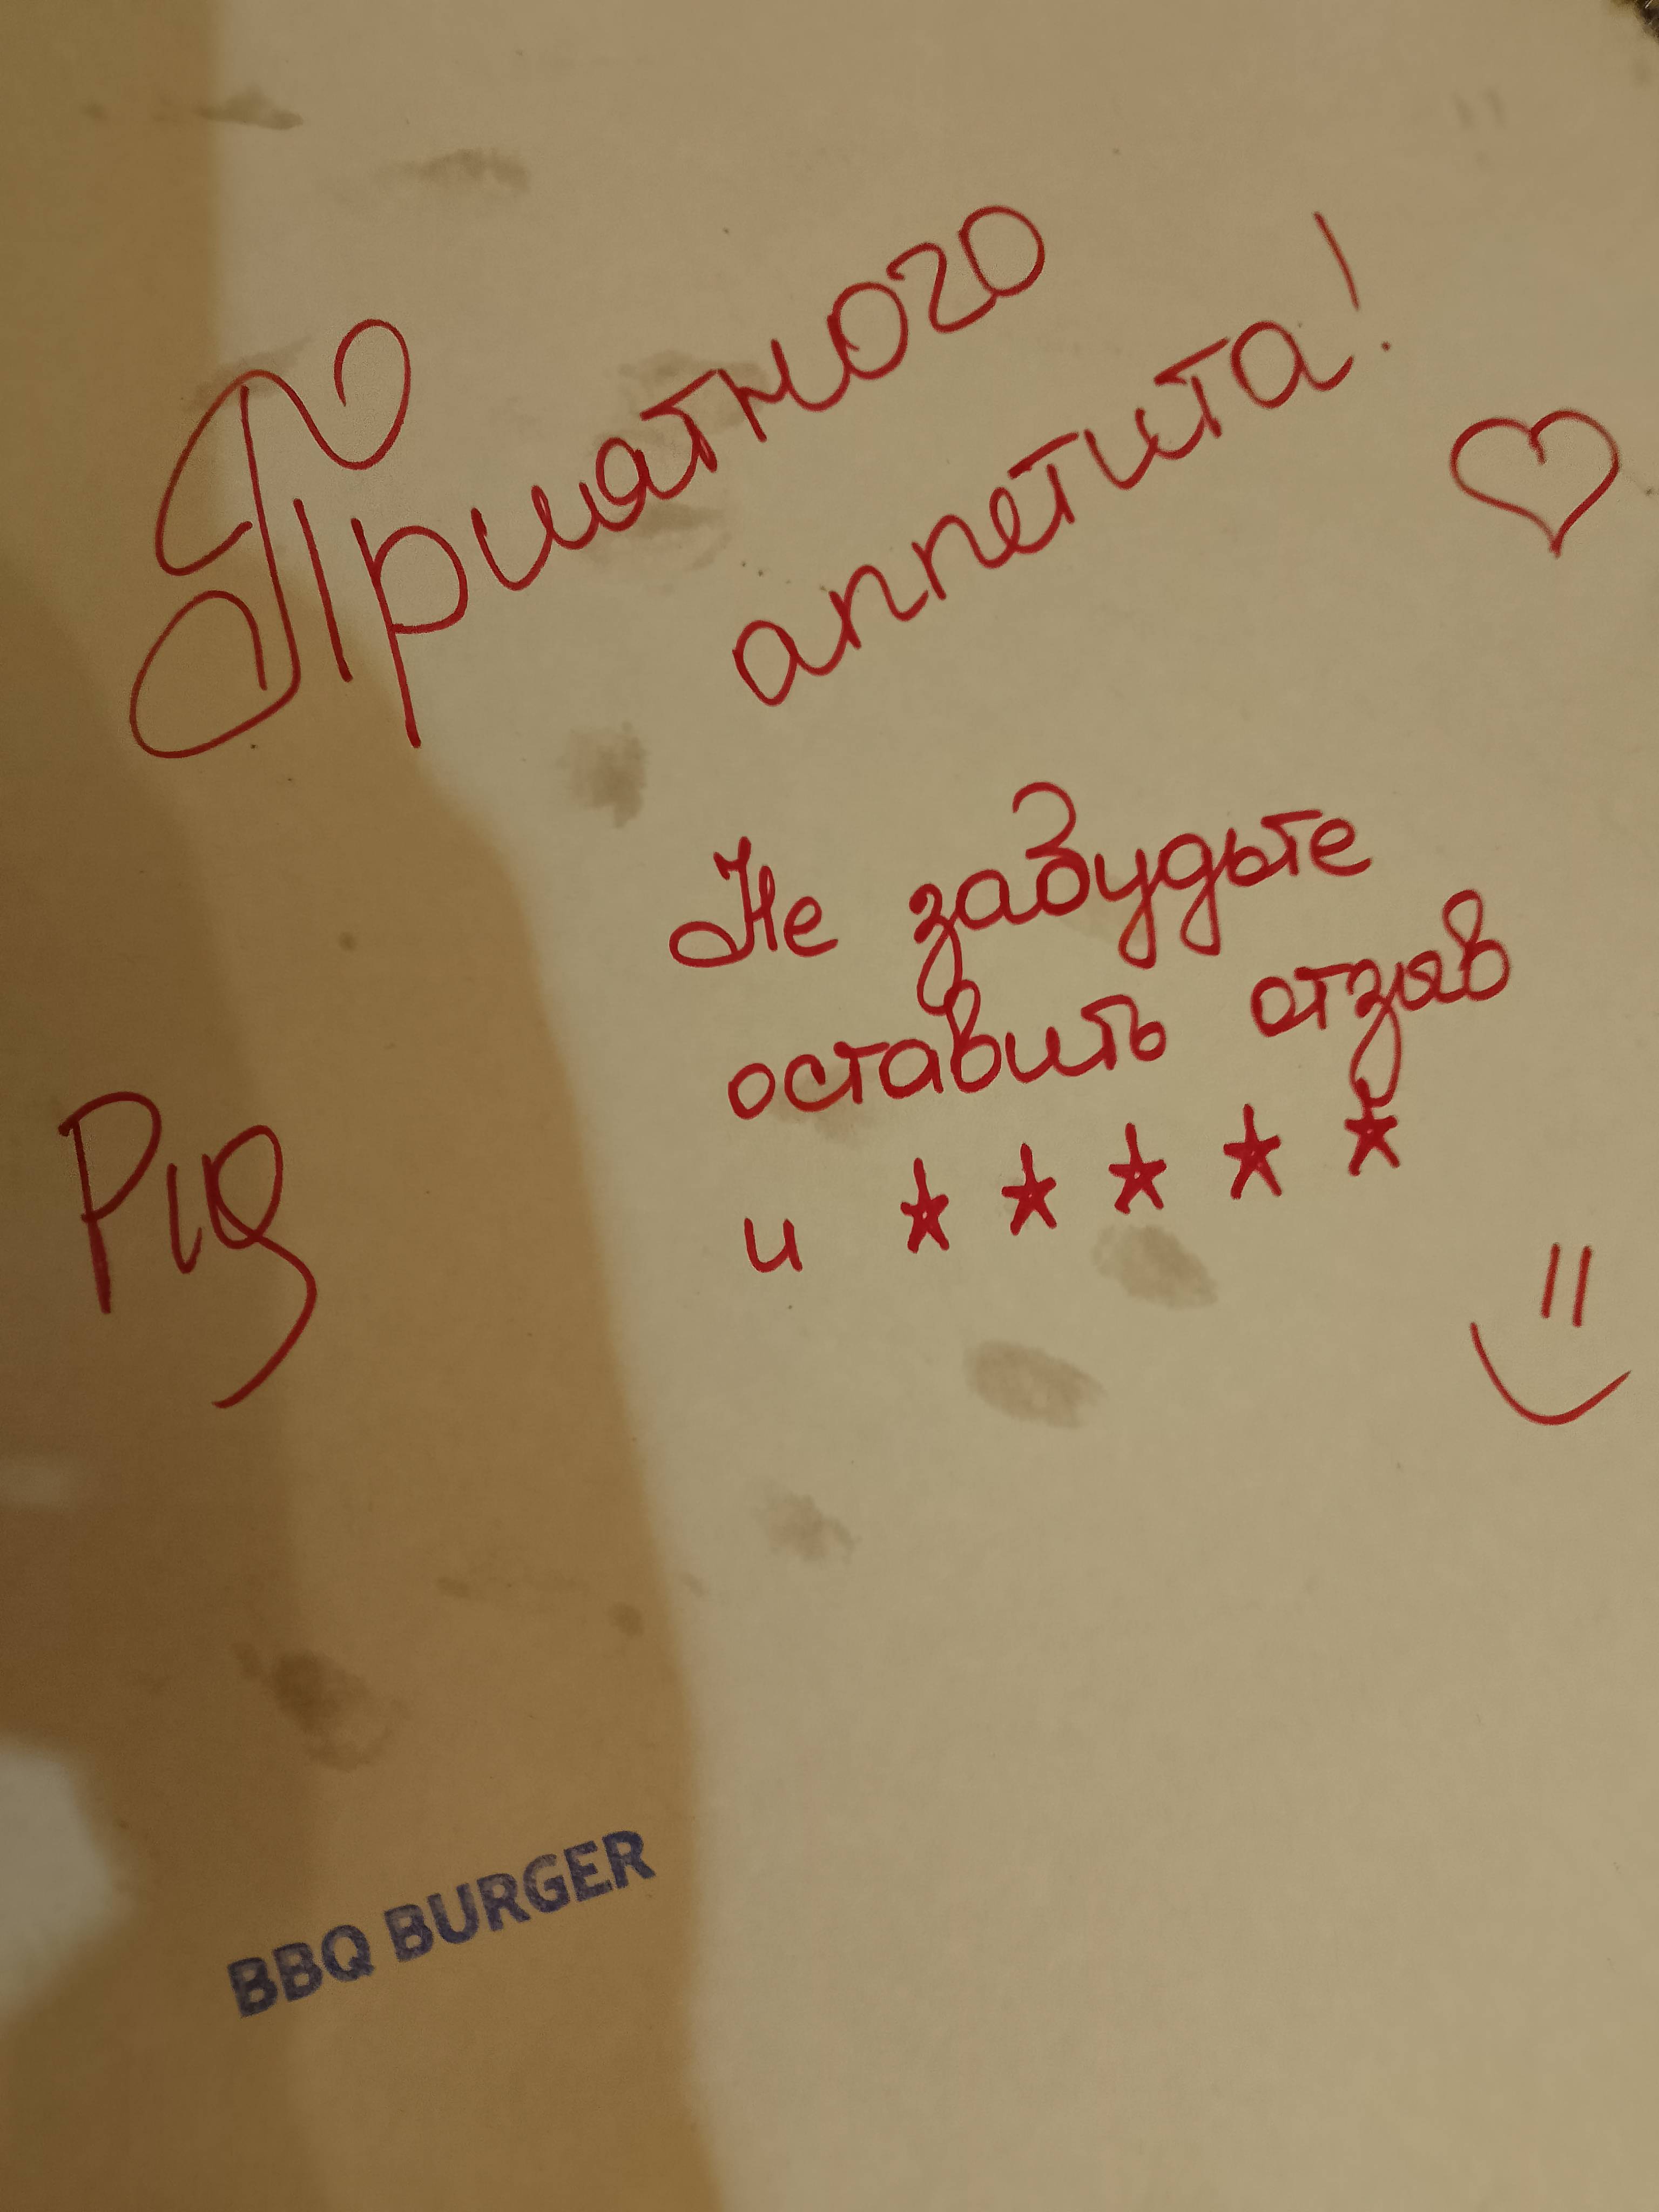 Приятного
аппетита!
Не забудьте
оставить отзыв
и ★ ★ ★ ★ ★
BBQ BURGER